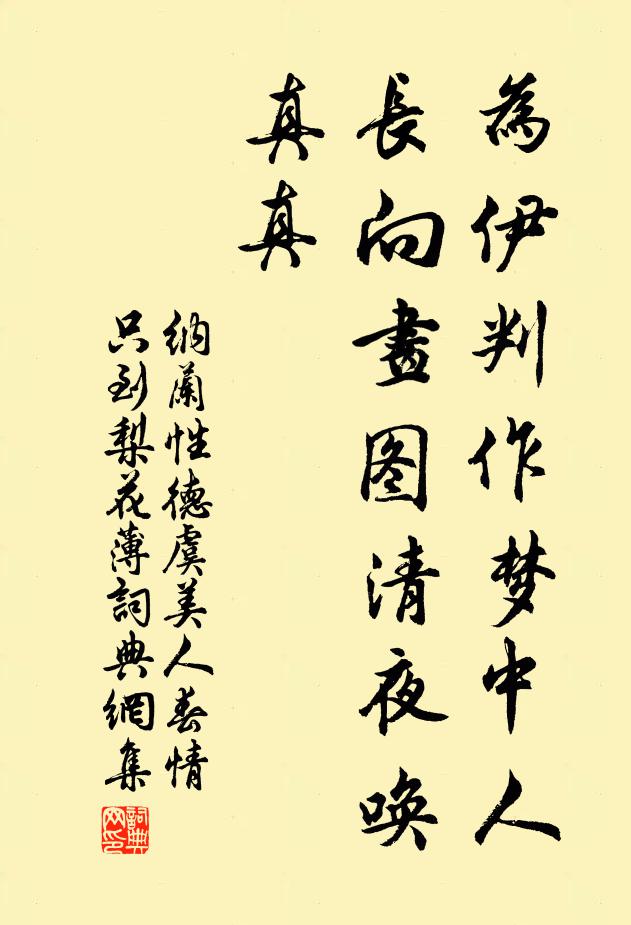 為伊判作梦中人
長向畫图清夜唤
真真
纳蘭性德虞美人春情
只到梨花薄詞典網集
詞典
网印